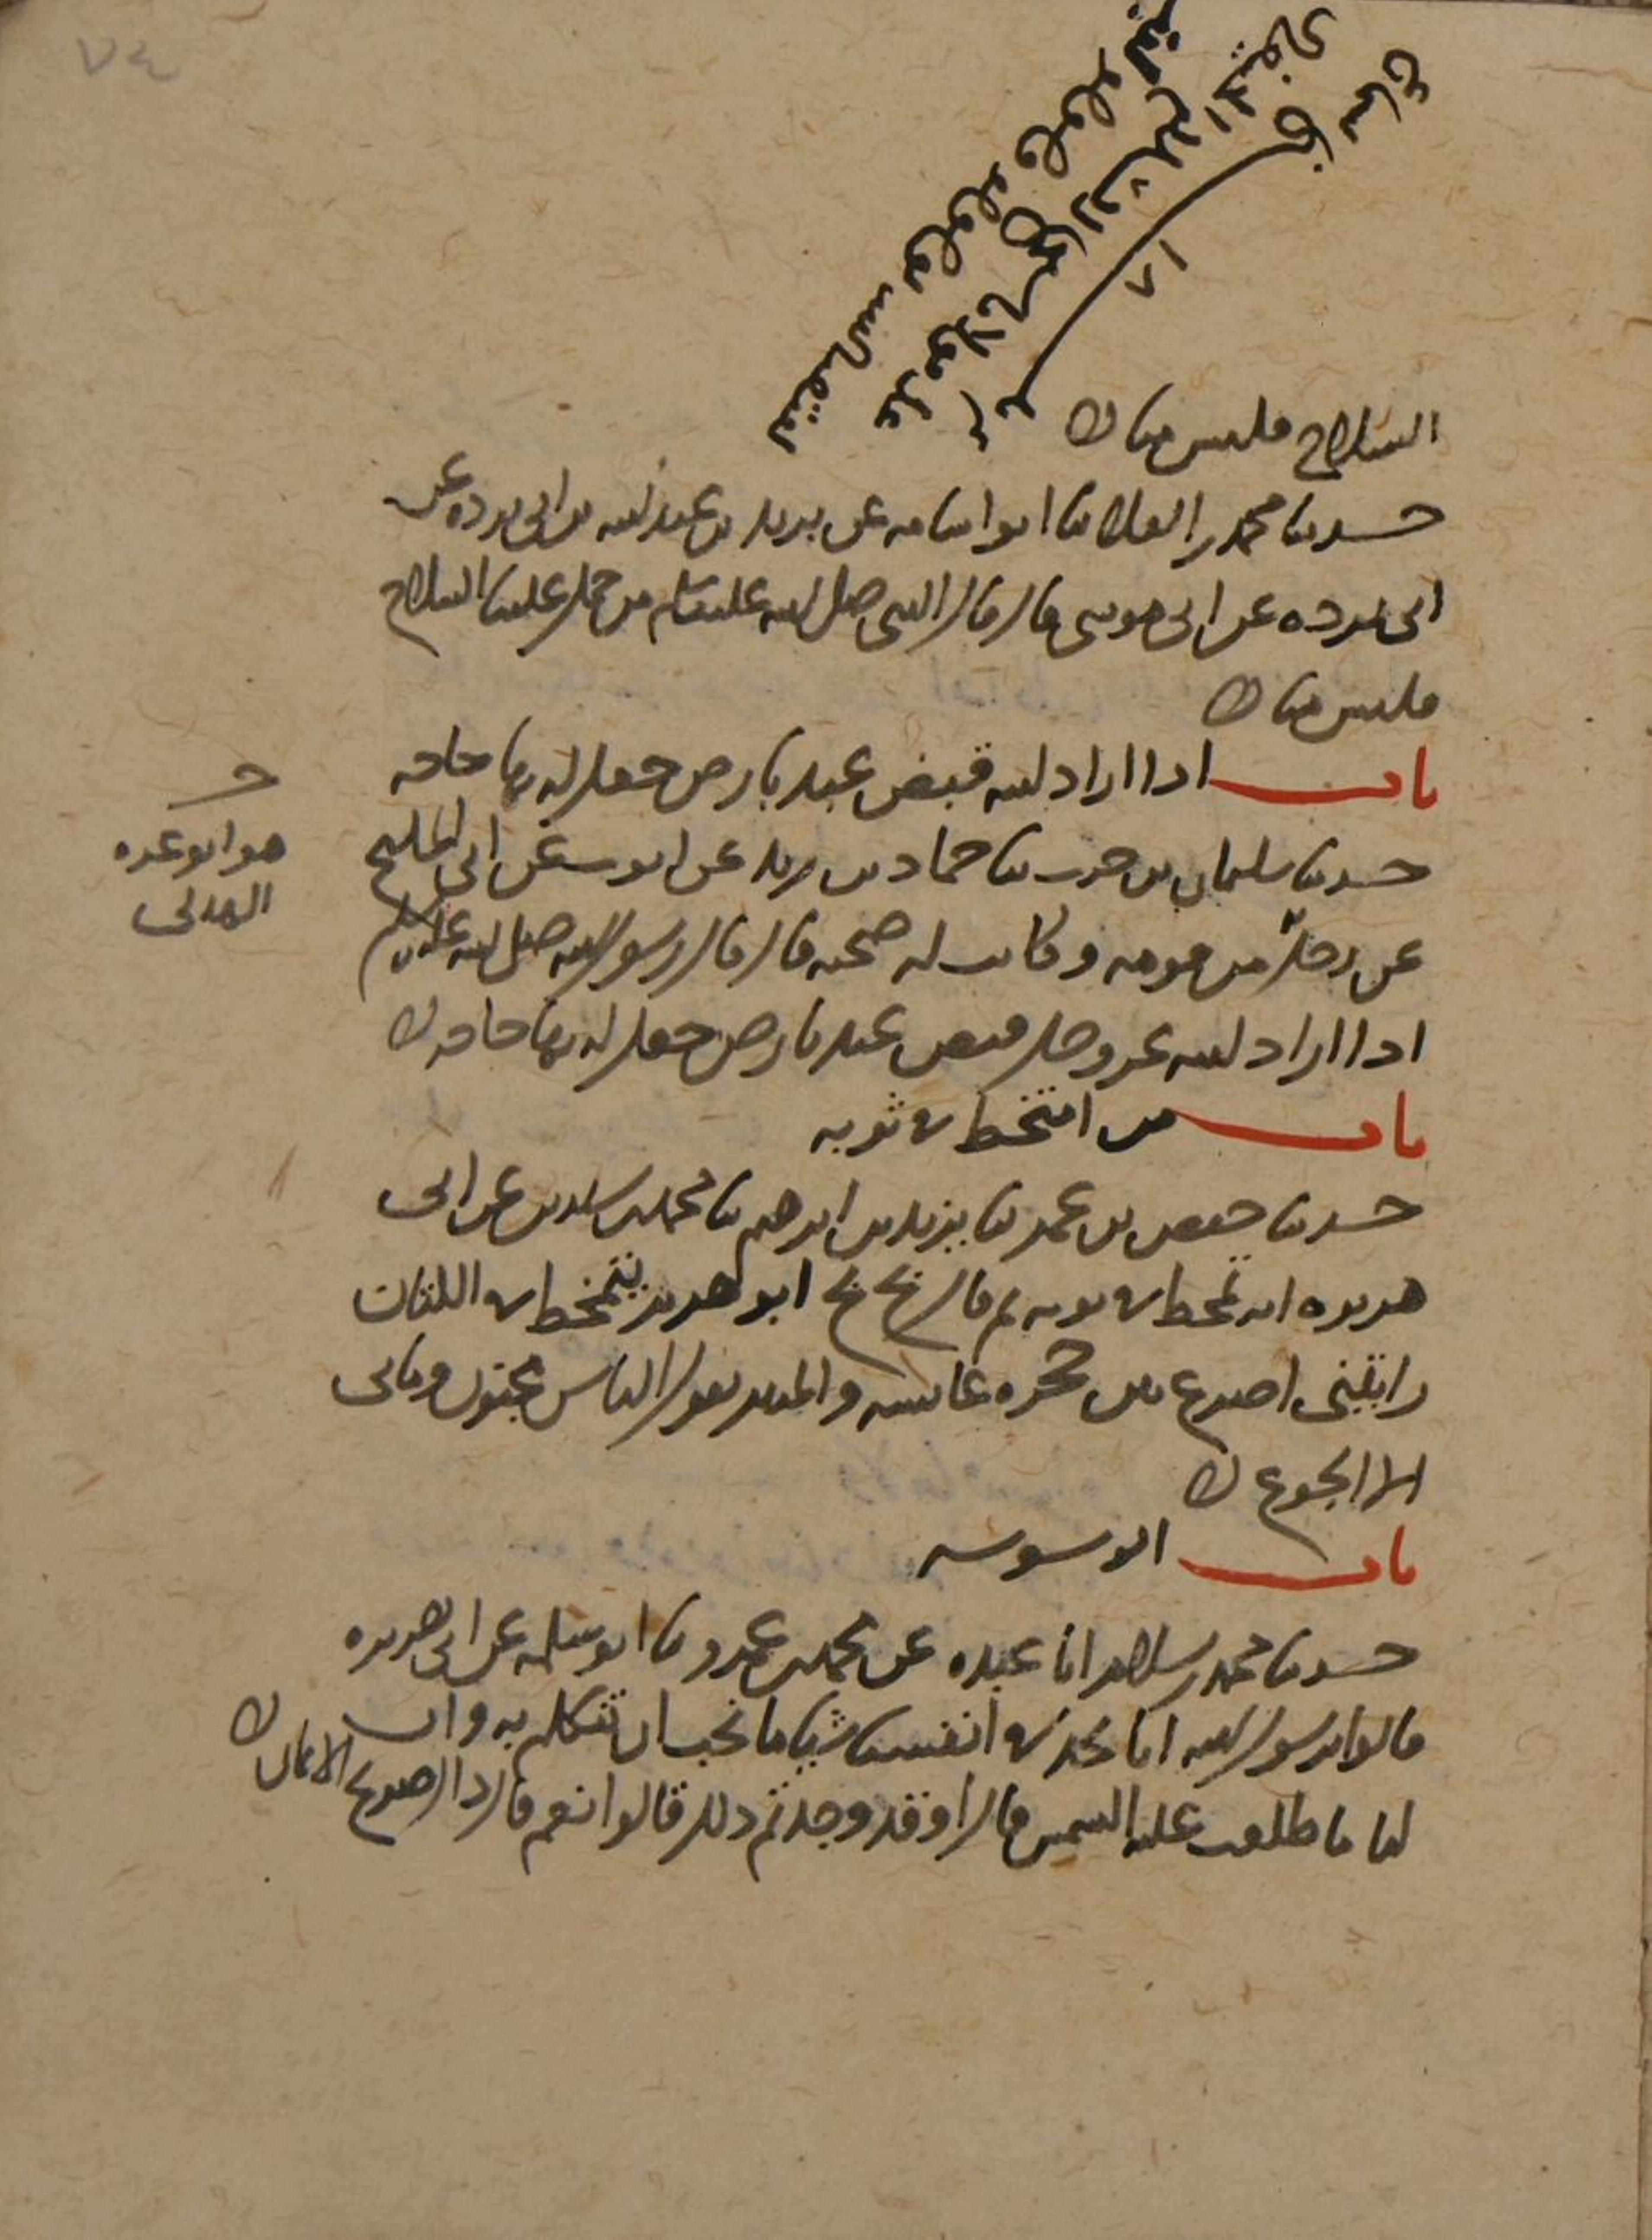 ٧٤
السلاح فليس منا
حدثنا محمد بن العلا ثنا ابو اسامه عن بريد بن عبد الله بن ابي برده عن
ابي برده عن ابي موسى قال قال النبي صلى الله عليه وسلم من حمل علينا السلاح
فليس منا
باب اذا اراد الله قبض عبد بارض جعل له بها حاجه
حدثنا سليمان بن حرب ثنا حماد بن زيد عن ايوب عن ابي المليح
عن رجل من قومه وكانت له صحبه قال قال رسول الله صلى الله عليه وسلم
اذا اراد الله عز وجل قبض عبد بارض جعل له بها حاجه
هو ابو عزه
الهذلي
باب من امتخط في ثوبه
حدثنا حفص بن عمر ثنا يزيد بن ابرهيم ثنا محمد بن سيرين عن ابي
هريره انه تمخط في ثوبه ثم قال بخ بخ ابو هريره يتمخط في الكتان
رايتني اصرع بين حجره عائشه والمنبر يقول الناس مجنون وما بي
الا الجوع
باب الوسوسه
حدثنا محمد بن سلام انا عبده عن محمد بن عمرو ثنا ابو سلمه عن ابي هريره
قالوا يرسول الله انا نجد في انفسنا شيئا ما نحب ان نتكلم به وان
لنا ما طلعت عليه الشمس قال او قد وجدتم ذلك قالوا نعم قال ذاك صريح الايمان